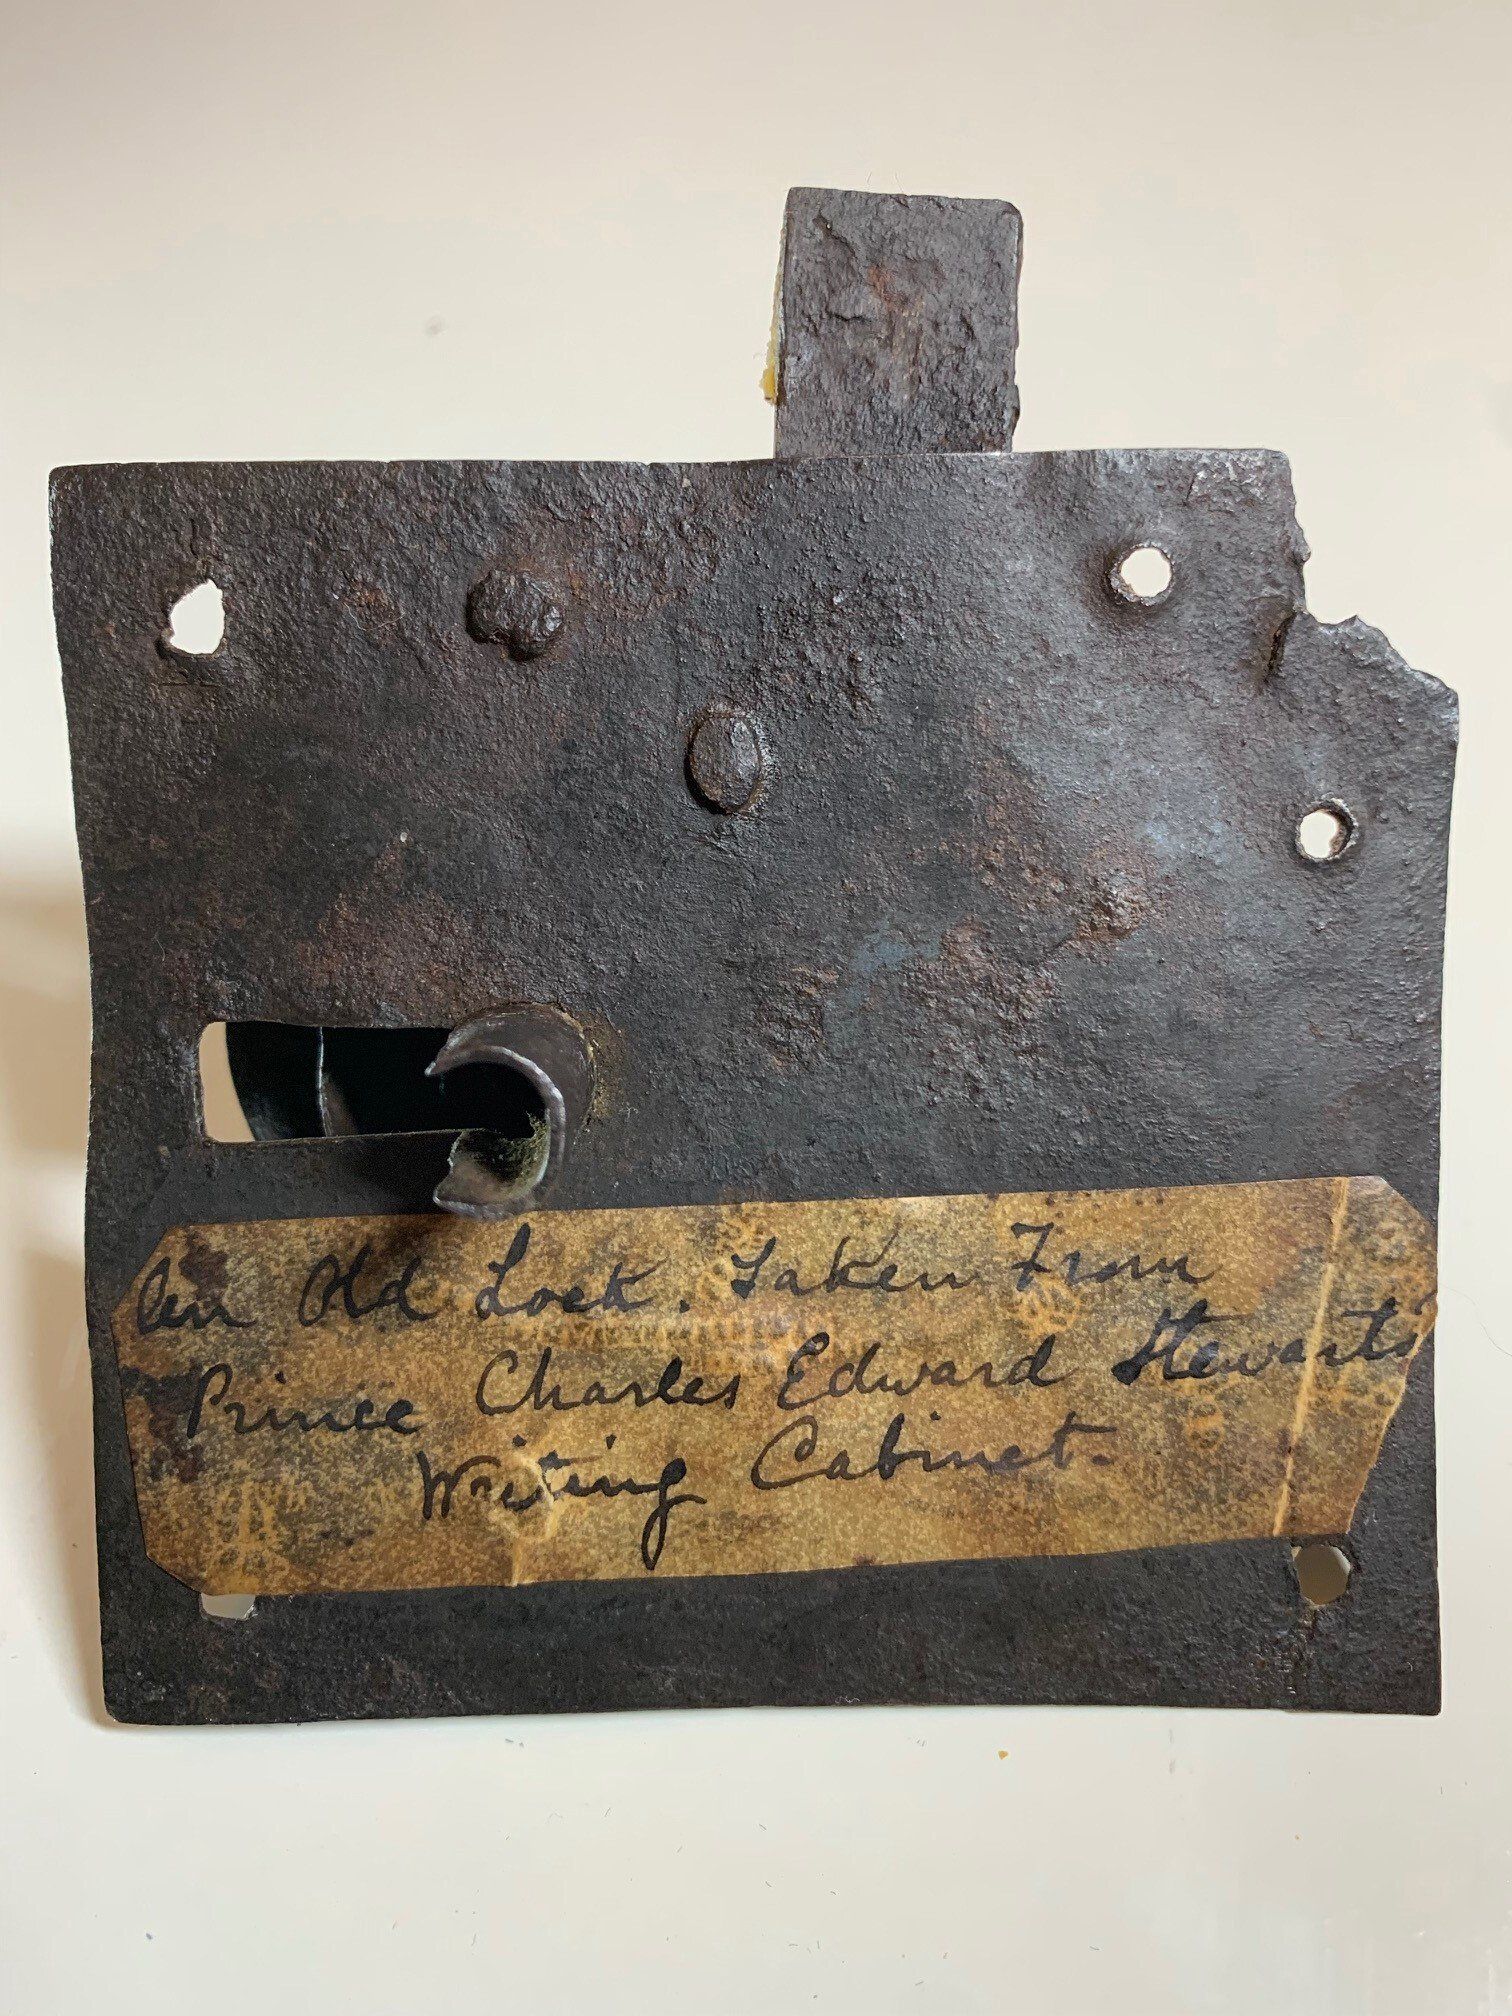 An Old Lock. Taken From
Prince Charles Edward Stewarts
Writing Cabinet.